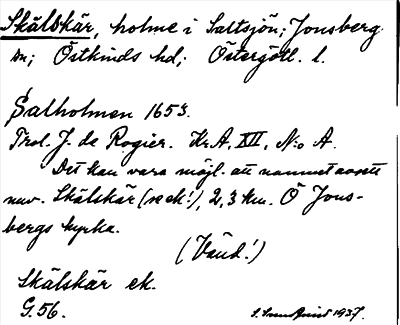 Skälskär, holme i Saltsjön; Jonsberg
sn; Östkinds hd; Östergötl. l.
Salholmen 1653.
Prol. J. de Rogier. Kr.A. XIII, N:o A.
Det kan vara möjl. att namnet avsett
nuv. Skälskär (se ek!), 2,3 km. Ö Jons-
bergs kyrka.
(Vänd!)
Skälskär ek.
G.56.
1937.